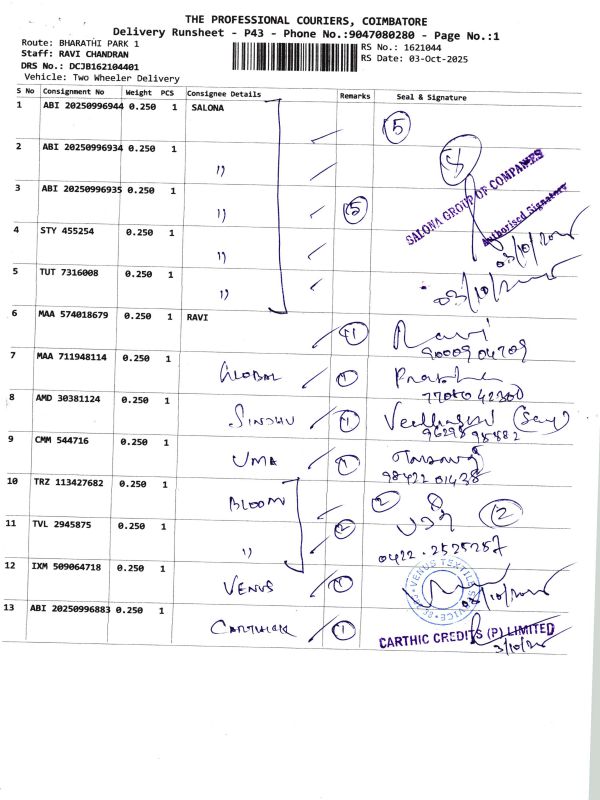 THE PROFESSIONAL COURIERS, COIMBATORE
Delivery Runsheet - P43 - Phone No.:9047080280 - Page No.:1
Route: BHARATHI PARK 1
RS No.: 1621044
Staff: RAVI CHANDRAN
RS Date: 03-Oct-2025
DRS No.: DCJB162104401
Vehicle: Two Wheeler Delivery
S No Consignment No Weight PCS Consignee Details Remarks Seal & Signature
1 ABI 20250996944 0.250 1 SALONA 5
2 ABI 20250996934 0.250 1 "
3 ABI 20250996935 0.250 1 " 5
SALONA GROUP OF COMPANIES
Authorised Signatory
4 STY 455254 0.250 1 " 03/10/2025
5 TUT 7316008 0.250 1 " 03/10/2025
6 MAA 574018679 0.250 1 RAVI 1 Ravi
9000904709
7 MAA 711948114 0.250 1 GLOBAL 1
8 AMD 30381124 0.250 1 SINDHU 1
9 CMM 544716 0.250 1 UMA 1
98422 01438
10 TRZ 113427682 0.250 1 BLOOM 2
11 TVL 2945875 0.250 1 " 2 2
0422-2525257
12 IXM 509064718 0.250 1 VENUS 1
VENUS TEXTILE SERVICE
03/10/2025
13 ABI 20250996883 0.250 1 CARTHICK 1
CARTHIC CREDITS (P) LIMITED
3/10/25